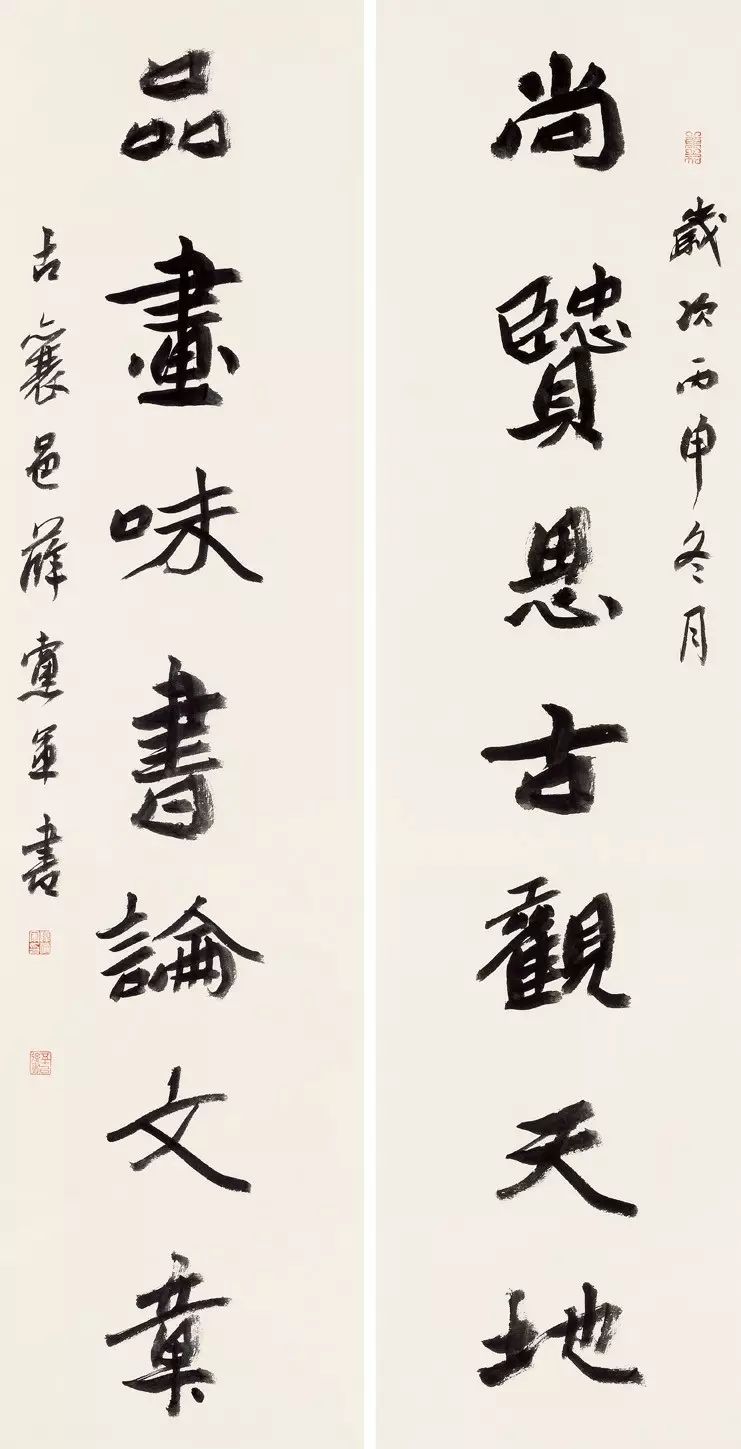 歲次丙申冬月
尚贒思古觀天地
品畫味書論文章
古襄邑薛軍書